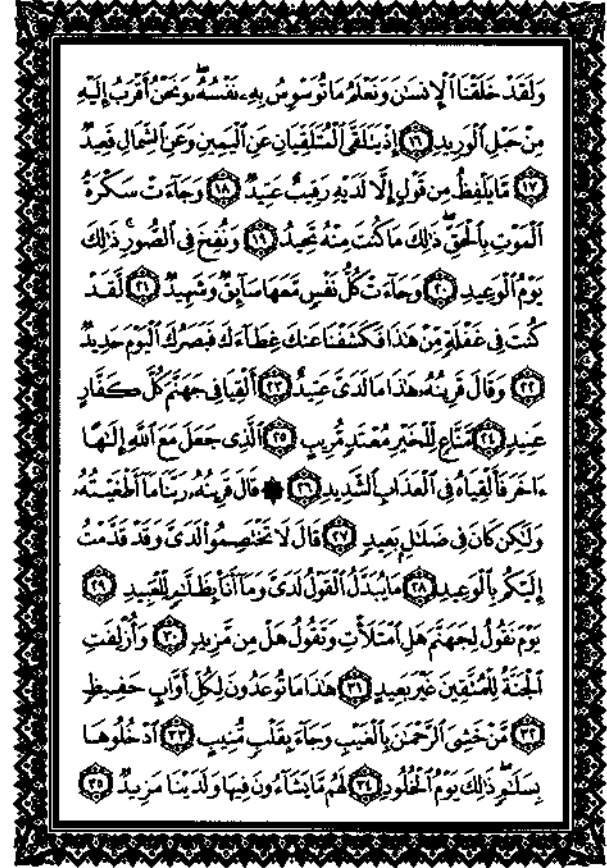 وَلَقَدْ خَلَقْنَا ٱلْإِنسَٰنَ وَنَعْلَمُ مَا تُوَسْوِسُ بِهِۦ نَفْسُهُۥۖ وَنَحْنُ أَقْرَبُ إِلَيْهِ
مِنْ حَبْلِ ٱلْوَرِيدِ ١٦ إِذْ يَتَلَقَّى ٱلْمُتَلَقِّيَانِ عَنِ ٱلْيَمِينِ وَعَنِ ٱلشِّمَالِ قَعِيدٌ
١٧ مَّا يَلْفِظُ مِن قَوْلٍ إِلَّا لَدَيْهِ رَقِيبٌ عَتِيدٌ ١٨ وَجَآءَتْ سَكْرَةُ
ٱلْمَوْتِ بِٱلْحَقِّۖ ذَٰلِكَ مَا كُنتَ مِنْهُ تَحِيدُ ١٩ وَنُفِخَ فِى ٱلصُّورِۚ ذَٰلِكَ
يَوْمُ ٱلْوَعِيدِ ٢٠ وَجَآءَتْ كُلُّ نَفْسٍ مَّعَهَا سَآئِقٌ وَشَهِيدٌ ٢١ لَّقَدْ
كُنتَ فِى غَفْلَةٍ مِّنْ هَٰذَا فَكَشَفْنَا عَنكَ غِطَآءَكَ فَبَصَرُكَ ٱلْيَوْمَ حَدِيدٌ
٢٢ وَقَالَ قَرِينُهُۥ هَٰذَا مَا لَدَىَّ عَتِيدٌ ٢٣ أَلْقِيَا فِى جَهَنَّمَ كُلَّ كَفَّارٍ
عَنِيدٍ ٢٤ مَّنَّاعٍ لِّلْخَيْرِ مُعْتَدٍ مُّرِيبٍ ٢٥ ٱلَّذِى جَعَلَ مَعَ ٱللَّهِ إِلَٰهًا
ءَاخَرَ فَأَلْقِيَاهُ فِى ٱلْعَذَابِ ٱلشَّدِيدِ ٢٦ ۞ قَالَ قَرِينُهُۥ رَبَّنَا مَآ أَطْغَيْتُهُۥ
وَلَٰكِن كَانَ فِى ضَلَٰلٍۭ بَعِيدٍ ٢٧ قَالَ لَا تَخْتَصِمُوا۟ لَدَىَّ وَقَدْ قَدَّمْتُ
إِلَيْكُم بِٱلْوَعِيدِ ٢٨ مَا يُبَدَّلُ ٱلْقَوْلُ لَدَىَّ وَمَآ أَنَا۠ بِظَلَّٰمٍ لِّلْعَبِيدِ ٢٩
يَوْمَ نَقُولُ لِجَهَنَّمَ هَلِ ٱمْتَلَأْتِ وَتَقُولُ هَلْ مِن مَّزِيدٍ ٣٠ وَأُزْلِفَتِ
ٱلْجَنَّةُ لِلْمُتَّقِينَ غَيْرَ بَعِيدٍ ٣١ هَٰذَا مَا تُوعَدُونَ لِكُلِّ أَوَّابٍ حَفِيظٍ
٣٢ مَّنْ خَشِىَ ٱلرَّحْمَٰنَ بِٱلْغَيْبِ وَجَآءَ بِقَلْبٍ مُّنِيبٍ ٣٣ ٱدْخُلُوهَا
بِسَلَٰمٍۖ ذَٰلِكَ يَوْمُ ٱلْخُلُودِ ٣٤ لَهُم مَّا يَشَآءُونَ فِيهَا وَلَدَيْنَا مَزِيدٌ ٣٥